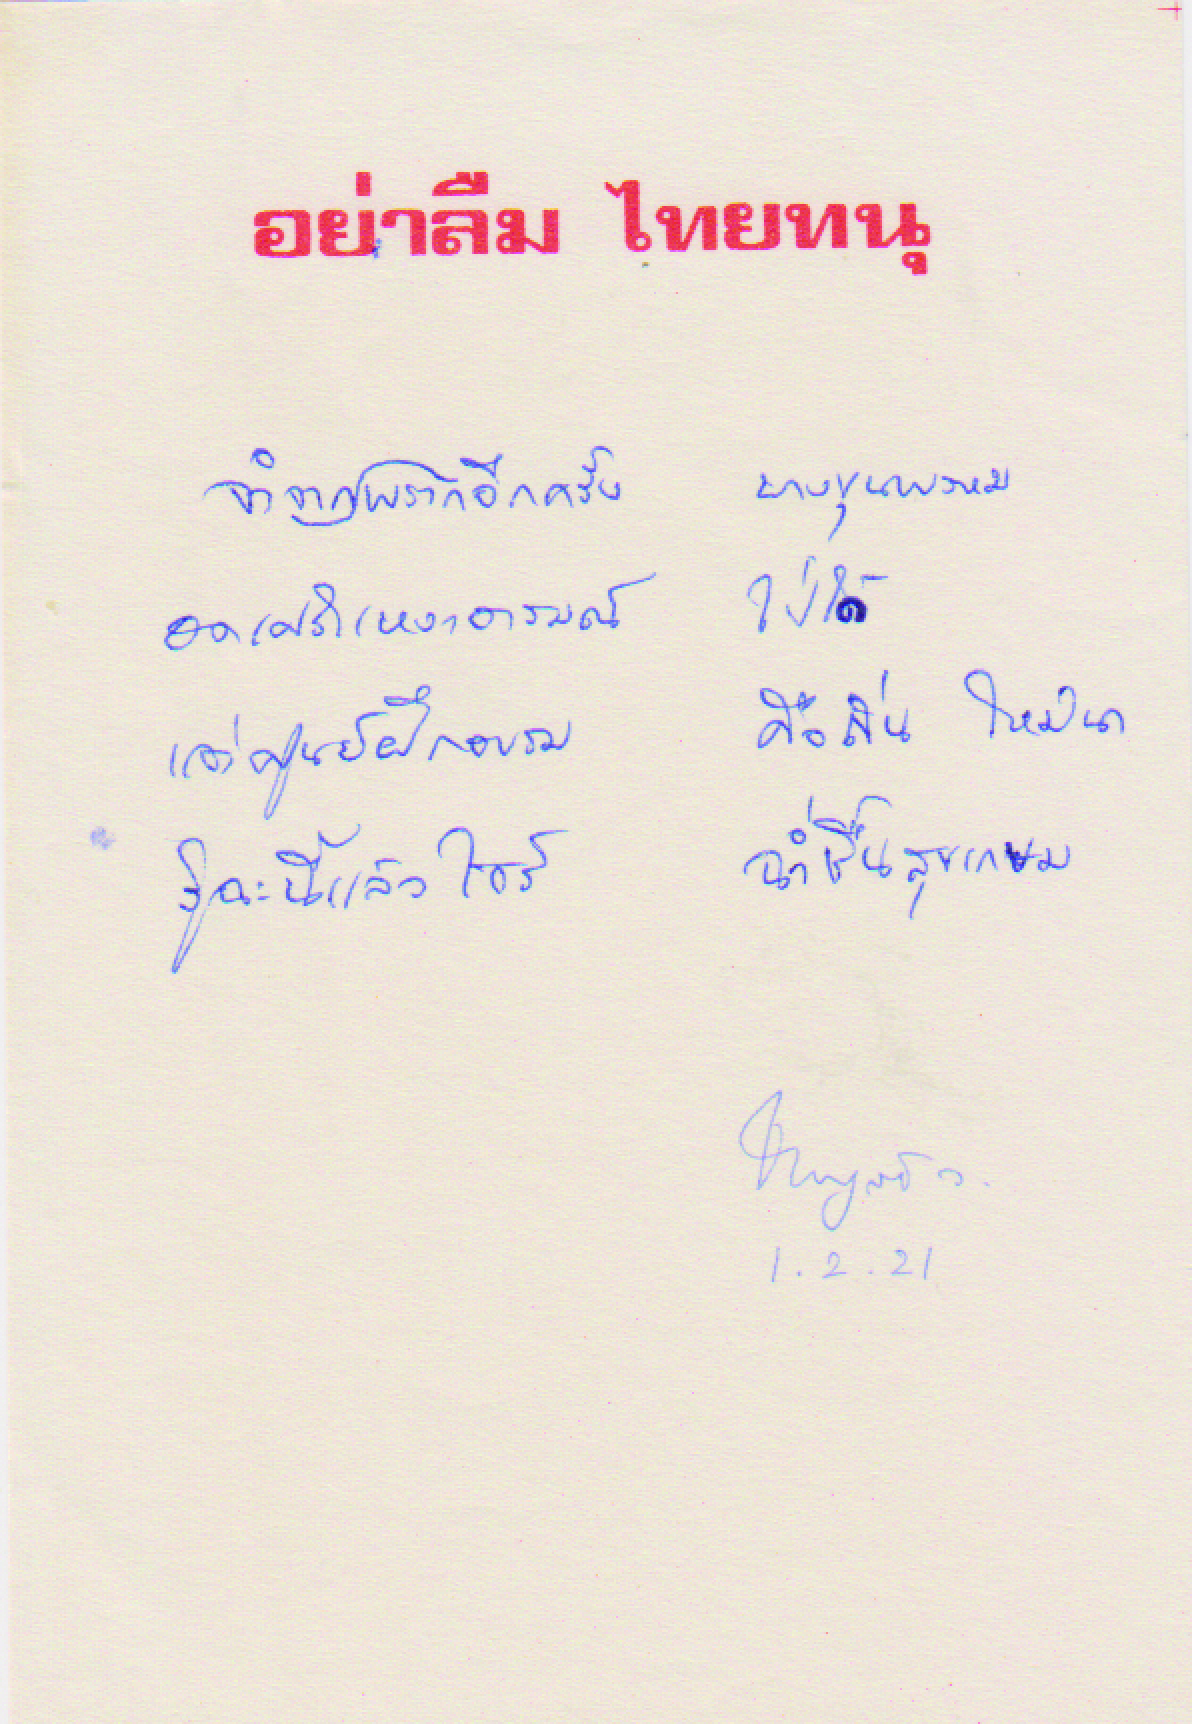 อย่าลืม ไทยทนุ
จำจากพรากอีกครั้ง บางขุนพรหม
อดเศร้าเหงาอารมณ์ ใช่ได้
แต่ศูนย์ฝึกอบรม คือถิ่น ใหม่นา
รู้ฉะนี้แล้วไซร้ ฉ่ำชื่นสุขเกษม
1.2.21